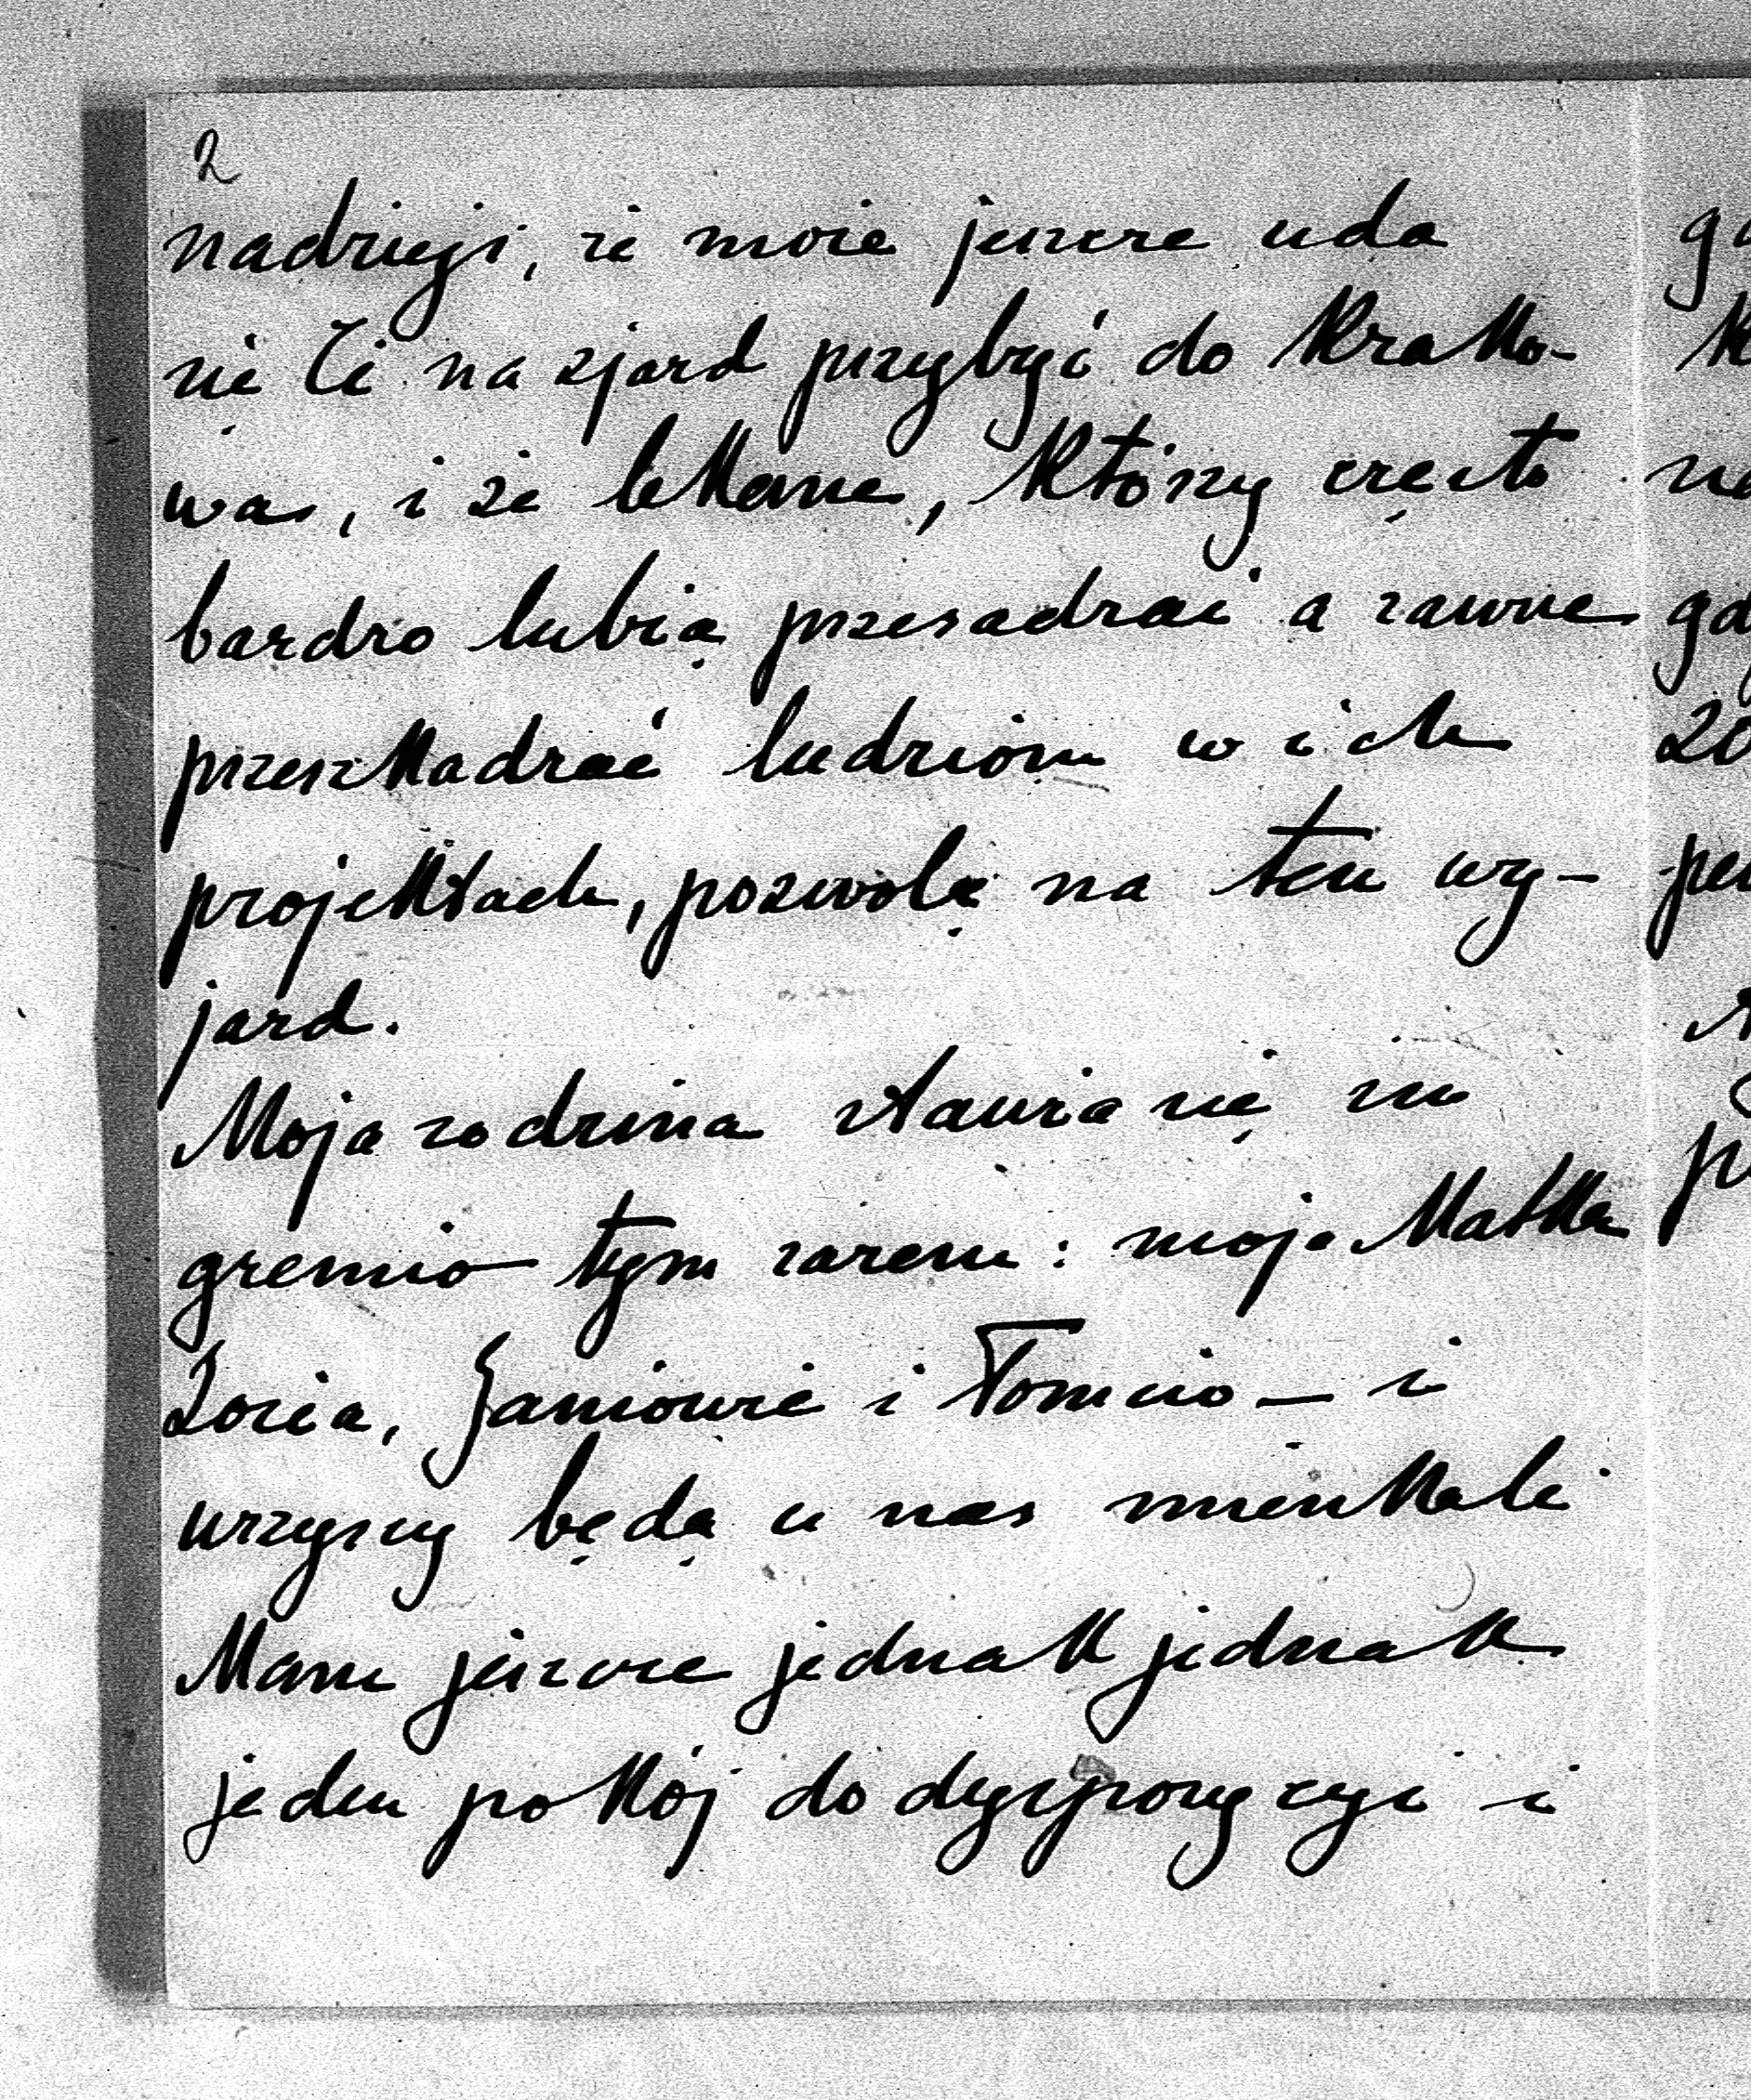 2
nadzieji, że może jeszcze uda
się Ci na zjazd przybyć do Krako-
wa, i że lekarze, którzy często
bardzo lubią przesadzać a zawsze
przeszkadzać ludziom w ich
projektach, pozwolą na ten wy-
jazd.
Moja rodzina stawia się in
gremio tym razem: moja Matka
Zosia, Janiowie i Tomcio – i
wszyscy będą u nas mieszkali
Mam jeszcze jednak jednak
jeden pokój do dyspozycyi i